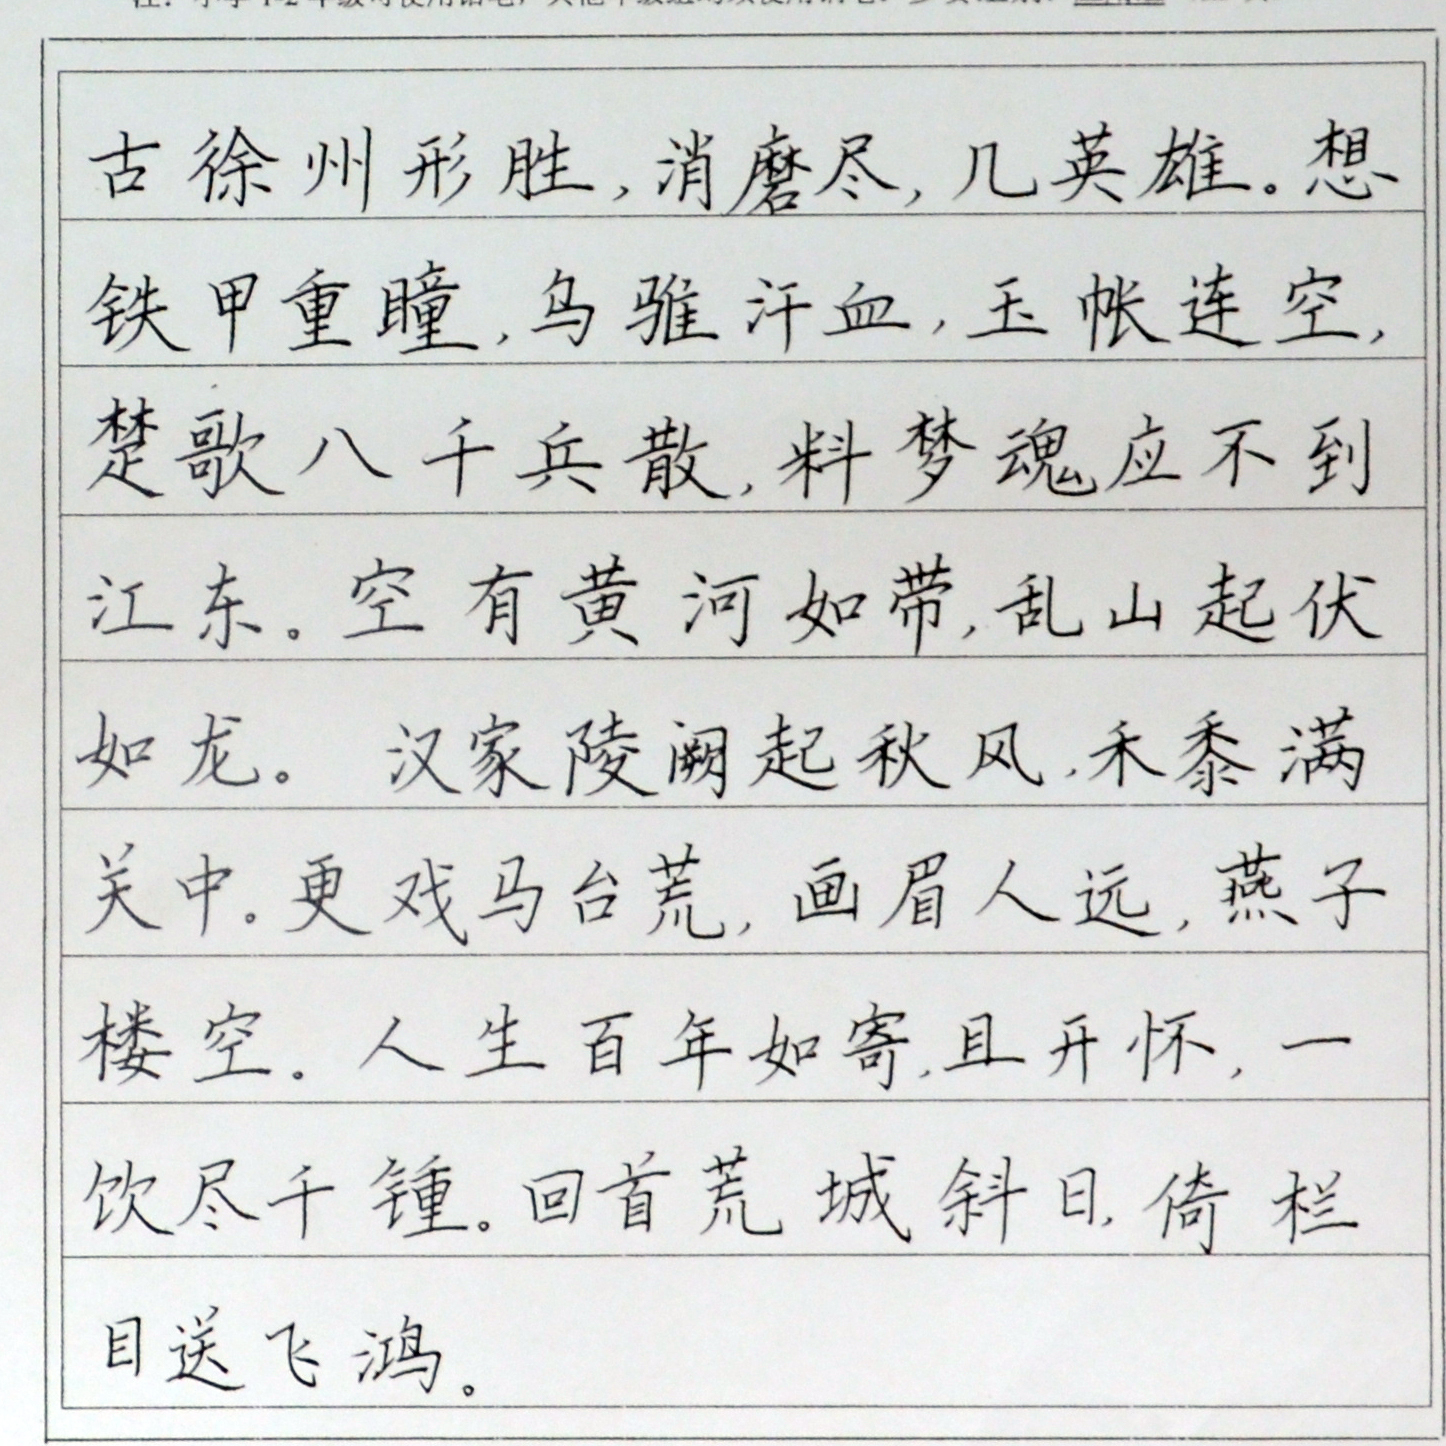 古徐州形胜，消磨尽，几英雄。想
铁甲重瞳，乌骓汗血，玉帐连空，
楚歌八千兵散，料梦魂应不到
江东。空有黄河如带，乱山起伏
如龙。 汉家陵阙起秋风，禾黍满
关中。更戏马台荒，画眉人远，燕子
楼空。人生百年如寄，且开怀，一
饮尽千锺。回首荒城斜日，倚栏
目送飞鸿。